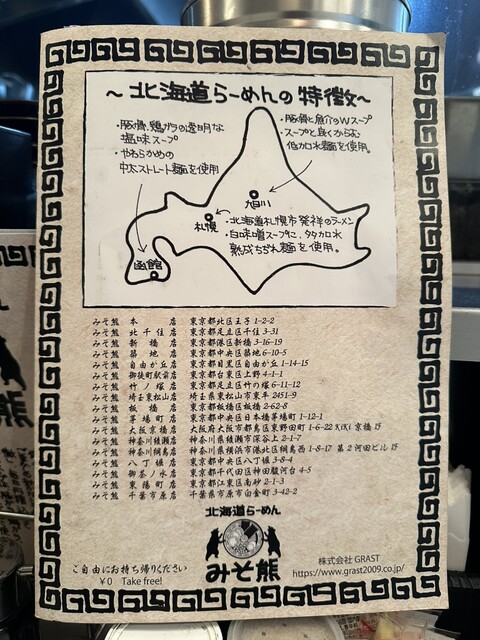 ～北海道らーめんの特徴～
・豚骨、鶏ガラの透明な
塩味スープ
・やわらかめの
中太ストレート麺を使用
・豚骨と魚介のWスープ
スープと良くからむ
低カロ水麺を使用。
旭川
札幌
・北海道札幌市発祥のラーメン
・白味噌スープに、タタカロ水
熟成ちぢれ麺を使用。
函館
みそ熊 本店 東京都北区王子1-2-2
みそ熊 北千住店 東京都足立区千住3-31
みそ熊 新橋店 東京都港区新橋3-16-19
みそ熊 築地店 東京都中央区築地6-10-5
みそ熊 自由が丘店 東京都目黒区自由が丘1-14-15
みそ熊 御徒町駅前店 東京都台東区上野4-1-1
みそ熊 竹ノ塚店 東京都足立区竹の塚6-11-12
みそ熊 埼玉東松山店 埼玉県東松山市東平2451-9
みそ熊 板橋店 東京都板橋区板橋2-62-8
みそ熊 茅場町店 東京都中央区日本橋茅場町1-12-1
みそ熊 大阪京橋店 大阪府大阪市都島区東野田町1-6-22 KiKi京橋1F
みそ熊 神奈川綾瀬店 神奈川県綾瀬市深谷上2-1-7
みそ熊 神奈川綱島店 神奈川県横浜市港北区綱島西1-8-17 第2河田ビル1F
みそ熊 八丁堀店 東京都中央区八丁堀3-8-4
みそ熊 御茶ノ水店 東京都千代田区神田駿河台4-5
みそ熊 東陽町店 東京都江東区南砂2-1-3
みそ熊 千葉市原店 千葉県市原市白金町3-42-2
北海道らーめん
みそ熊
ご自由にお持ち帰りください
¥0 Take free!
株式会社 GRAST
https://www.grast2009.co.jp/